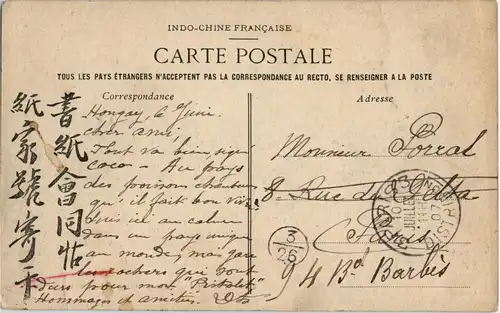 INDO-CHINE FRANÇAISE
CARTE POSTALE
TOUS LES PAYS ÉTRANGERS N'ACCEPTENT PAS LA CORRESPONDANCE AU RECTO, SE RENSEIGNER A LA POSTE
Correspondance
Hongay, 6 Juin.
cher ami,
Tout va bien, signé
coco - Au pays
des poissons chanteurs
qu'il fait bon vivre
suis ici au calme
dans un pays unique
au monde, mais gare
les rochers qui sont
durs pour mon "Pistolet"
Hommages et amitiés.
書紙會同帖
紙家號寄于
Adresse
Monsieur Porral
8 Rue de
Paris
94 Bd Barbès
3/26
PARIS
DISTRIBUTION
JUILLET
07